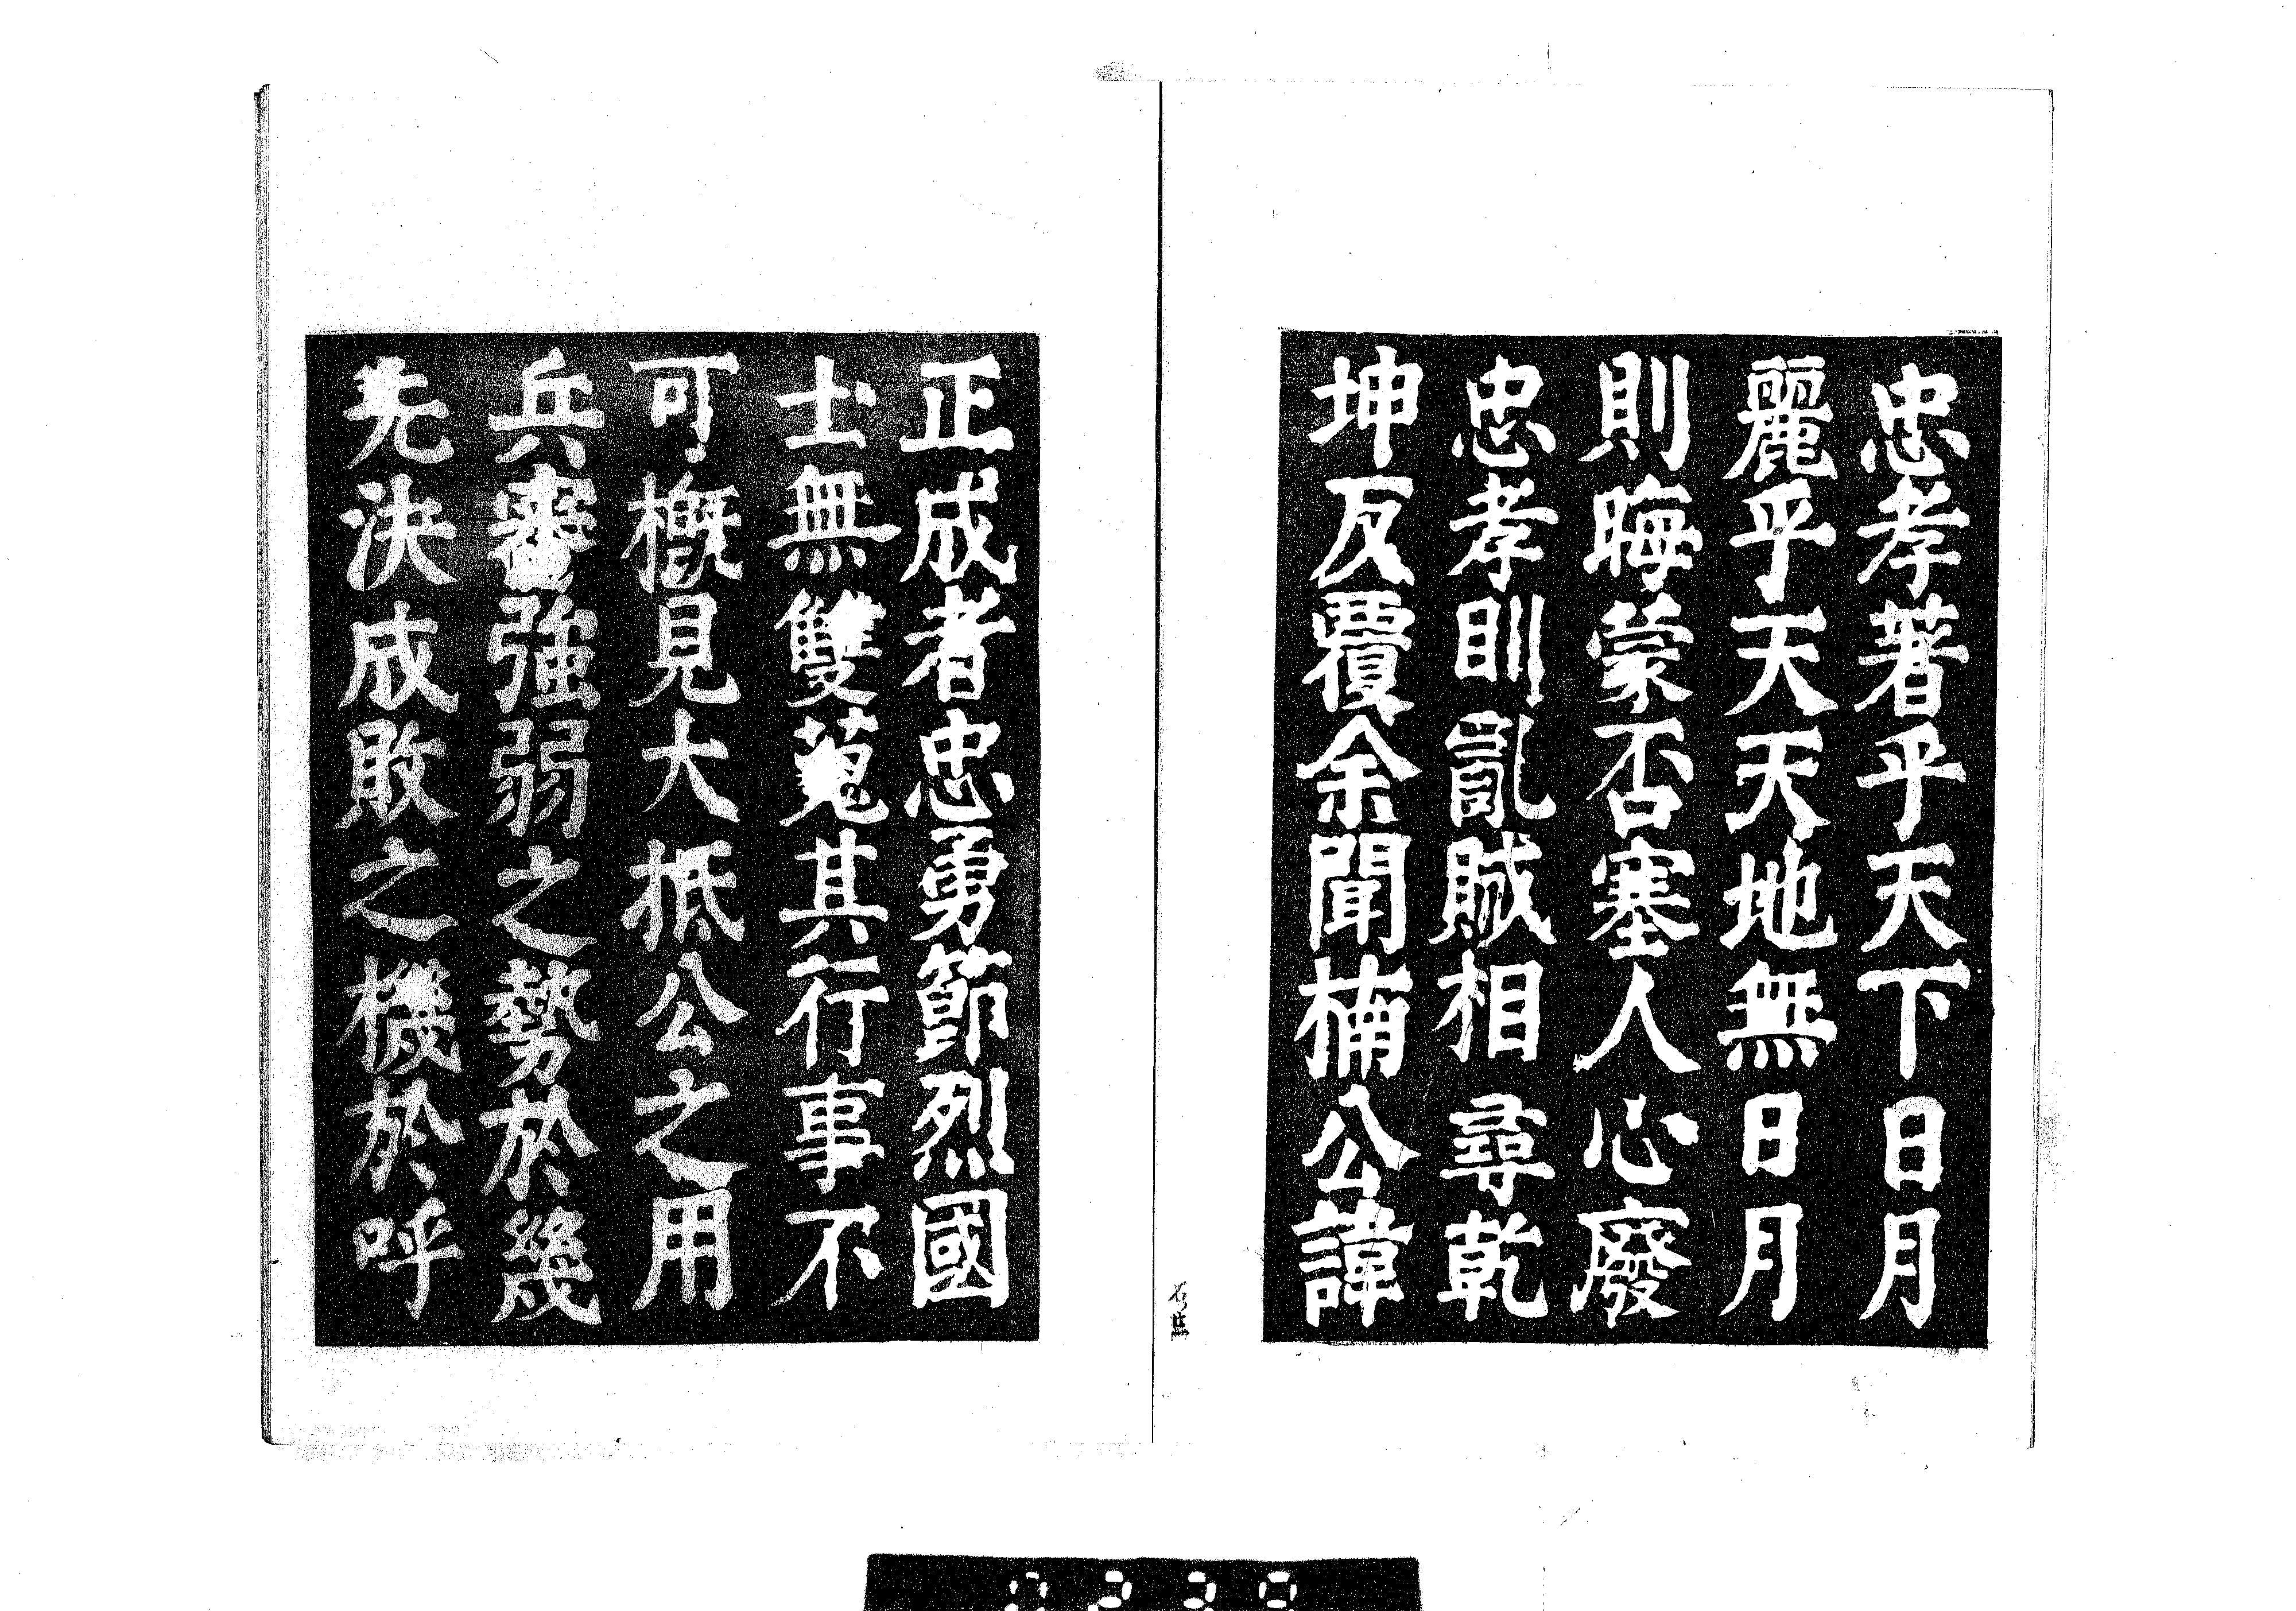 忠孝著乎天下日月
麗乎天天地無日月
則晦蒙否塞人心廢
忠孝則亂賊相尋乾
坤反覆余聞楠公諱
正成者忠勇節烈國
士無雙蒐其行事不
可概見大抵公之用
兵審強弱之勢於幾
先決成敗之機於呼